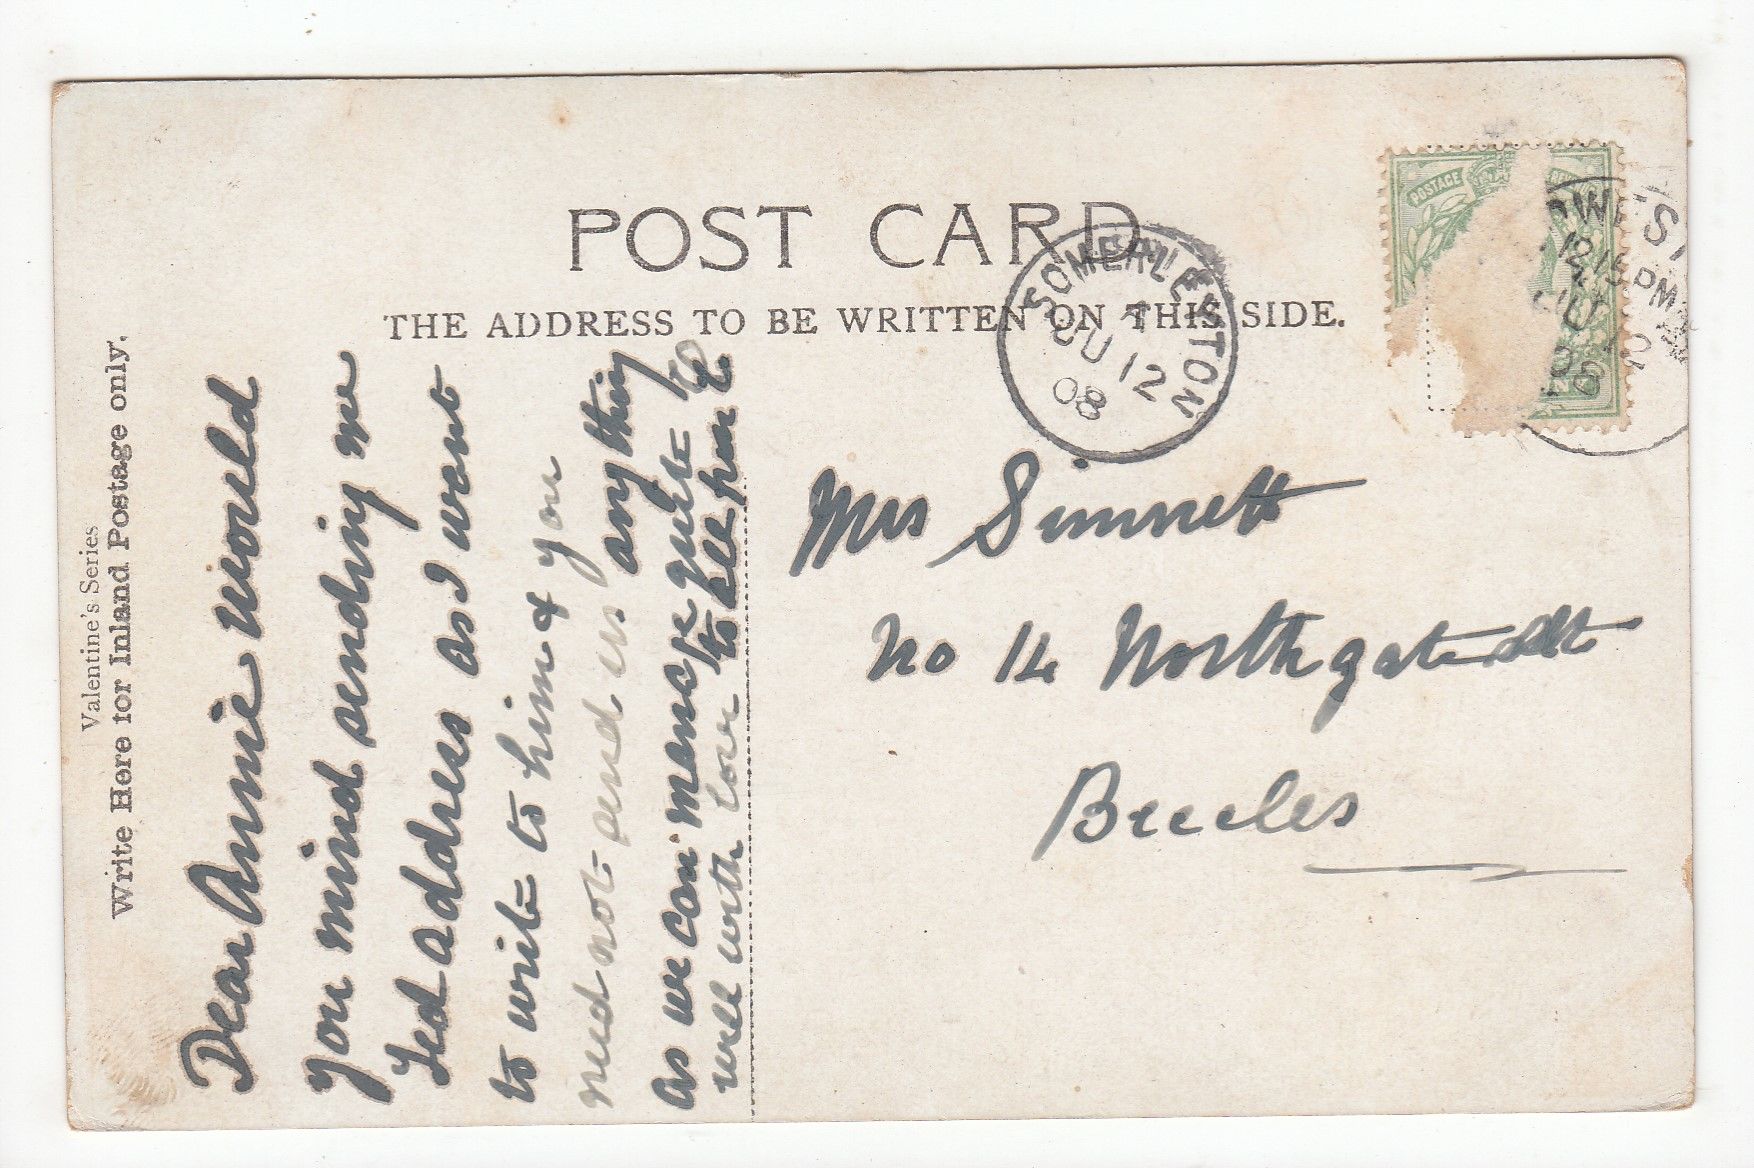 Valentine's Series
Write Here for Inland Postage only.
POST CARD
THE ADDRESS TO BE WRITTEN ON THIS SIDE.
SOMERLEYTON
JU 12
08
POSTAGE
12.15 PM
JU 12
08
Dear Annie would
you mind sending me
Ted address as I want
to write to him & you
need not send us any thing
as we can manage quite
well with love to all from
Mrs Sinnett
No 14 Northgate St
Beccles